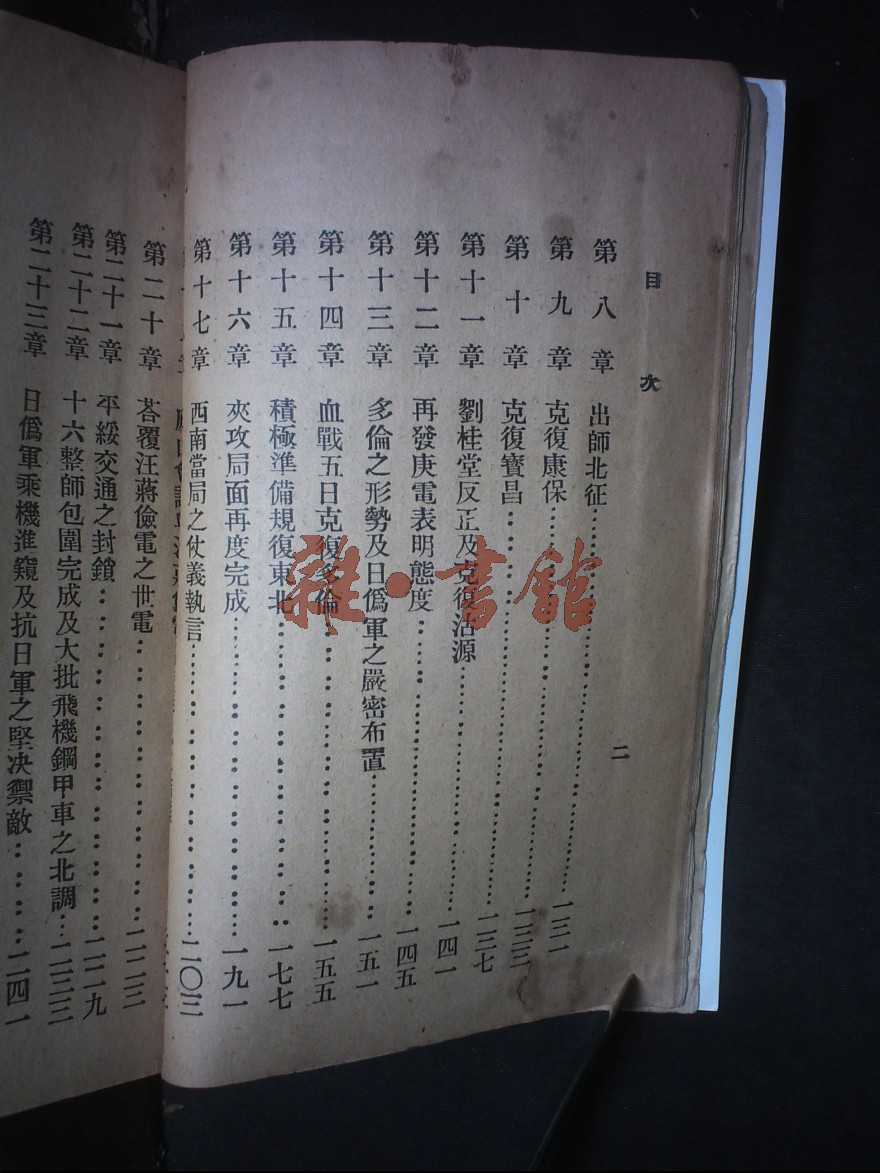 目次 二
第八章 出師北征……一三一
第九章 克復康保……一三三
第十章 克復寶昌……一三七
第十一章 劉桂堂反正及克復沽源……一四一
第十二章 再發庚電表明態度……一四五
第十三章 多倫之形勢及日僞軍之嚴密布置……一五一
第十四章 血戰五日克復多倫……一五五
第十五章 積極準備規復東北……一七七
第十六章 夾攻局面再度完成……一九一
第十七章 西南當局之仗義執言……二〇三
第二十章 荅覆汪蔣儉電之世電……二二三
第二十一章 平綏交通之封鎖……二二九
第二十二章 十六整師包圍完成及大批飛機鋼甲車之北調……二三三
第二十三章 日僞軍乘機進窺及抗日軍之堅决禦敵……二四一
雜·書館